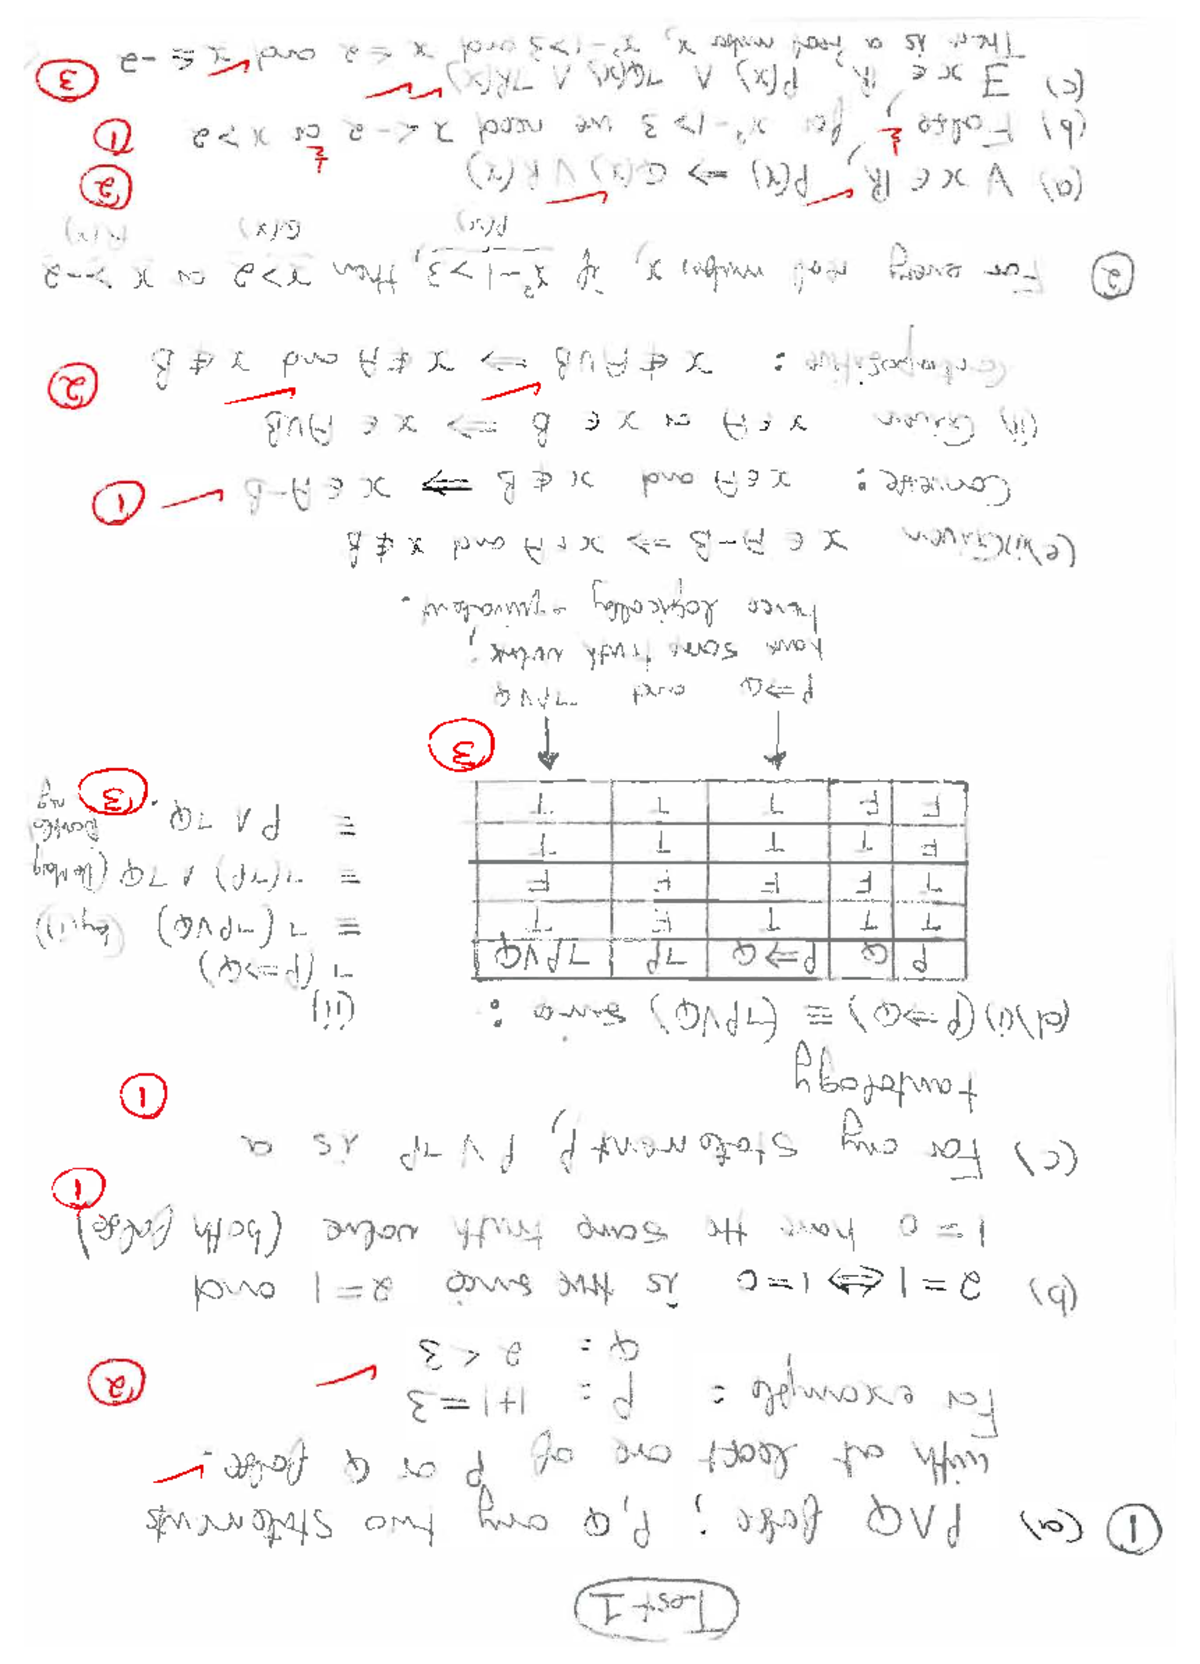 Test 1
① (a) P∧Q false ; P, Q any two statements
with at least one of P or Q false.
For example : P : 1+1=3
Q : 2 < 3
2
(b) 2=1 ⟺ 1=0 is true since 2=1 and
1=0 have the same truth value (both false)
1
(c) For any statement P, P ∨ ¬P is a
tautology
1
(d)(i) (P⇒Q) ≡ (¬P∨Q) since :
P Q P⇒Q ¬P ¬P∨Q
T T T F T
T F F F F
F T T T T
F F T T T
3
P⇒Q and ¬P∨Q
have same truth values,
hence logically equivalent.
(ii)
¬(P⇒Q)
≡ ¬(¬P∨Q) (by (i))
≡ ¬(¬P) ∧ ¬Q (De Morgan)
≡ P ∧ ¬Q.
3
(e)(i) Given x ∈ A-B ⇒ x ∈ A and x ∉ B
Converse : x ∈ A and x ∉ B ⇒ x ∈ A-B
1
(ii) Given x ∈ A or x ∈ B ⇒ x ∈ A∪B
Contrapositive : x ∉ A∪B ⇒ x ∉ A and x ∉ B
2
② For every real number x, if x²-1>3, then x>2 or x<-2
P(x) Q(x) R(x)
(a) ∀ x ∈ ℝ, P(x) ⇒ Q(x) ∨ R(x)
2
(b) False, for x²-1>3 we need x<-2 or x>2
½ ½ 1
(c) ∃ x ∈ ℝ, P(x) ∧ ¬Q(x) ∧ ¬R(x)
There is a real number x, x²-1>3 and x ≤ 2 and x ≥ -2
3